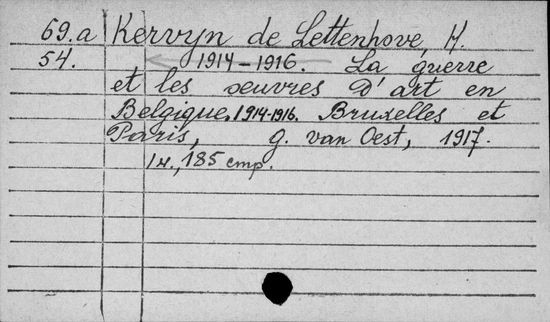 69.a Kervyn de Lettenhove, H.
54. 1914-1916. La guerre
et les oeuvres d'art en
Belgique. 1914-1916. Bruxelles et
Paris, G. van Oest, 1917.
1 н., 185 стр.